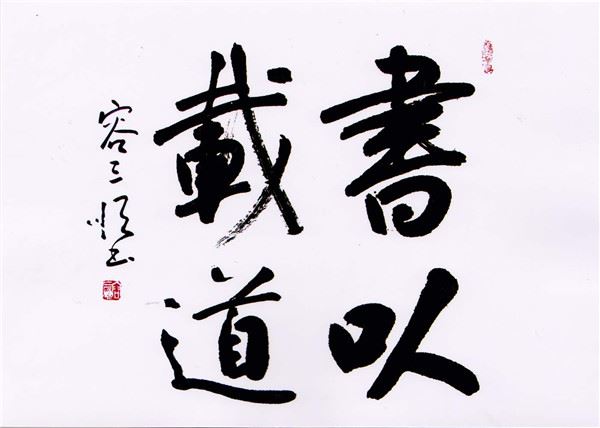 書以
載道
容三书